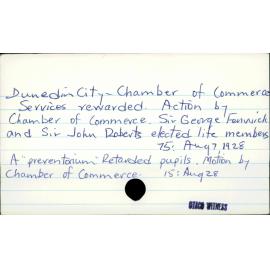 Dunedin City - Chamber of Commerce
Services rewarded. Action by
Chamber of Commerce. Sir George Fenwick
and Sir John Roberts elected life members
75: Aug 7, 1928
A "preventorium" Retarded pupils. Motion by
Chamber of Commerce. 15: Aug 28
OTAGO WITNESS